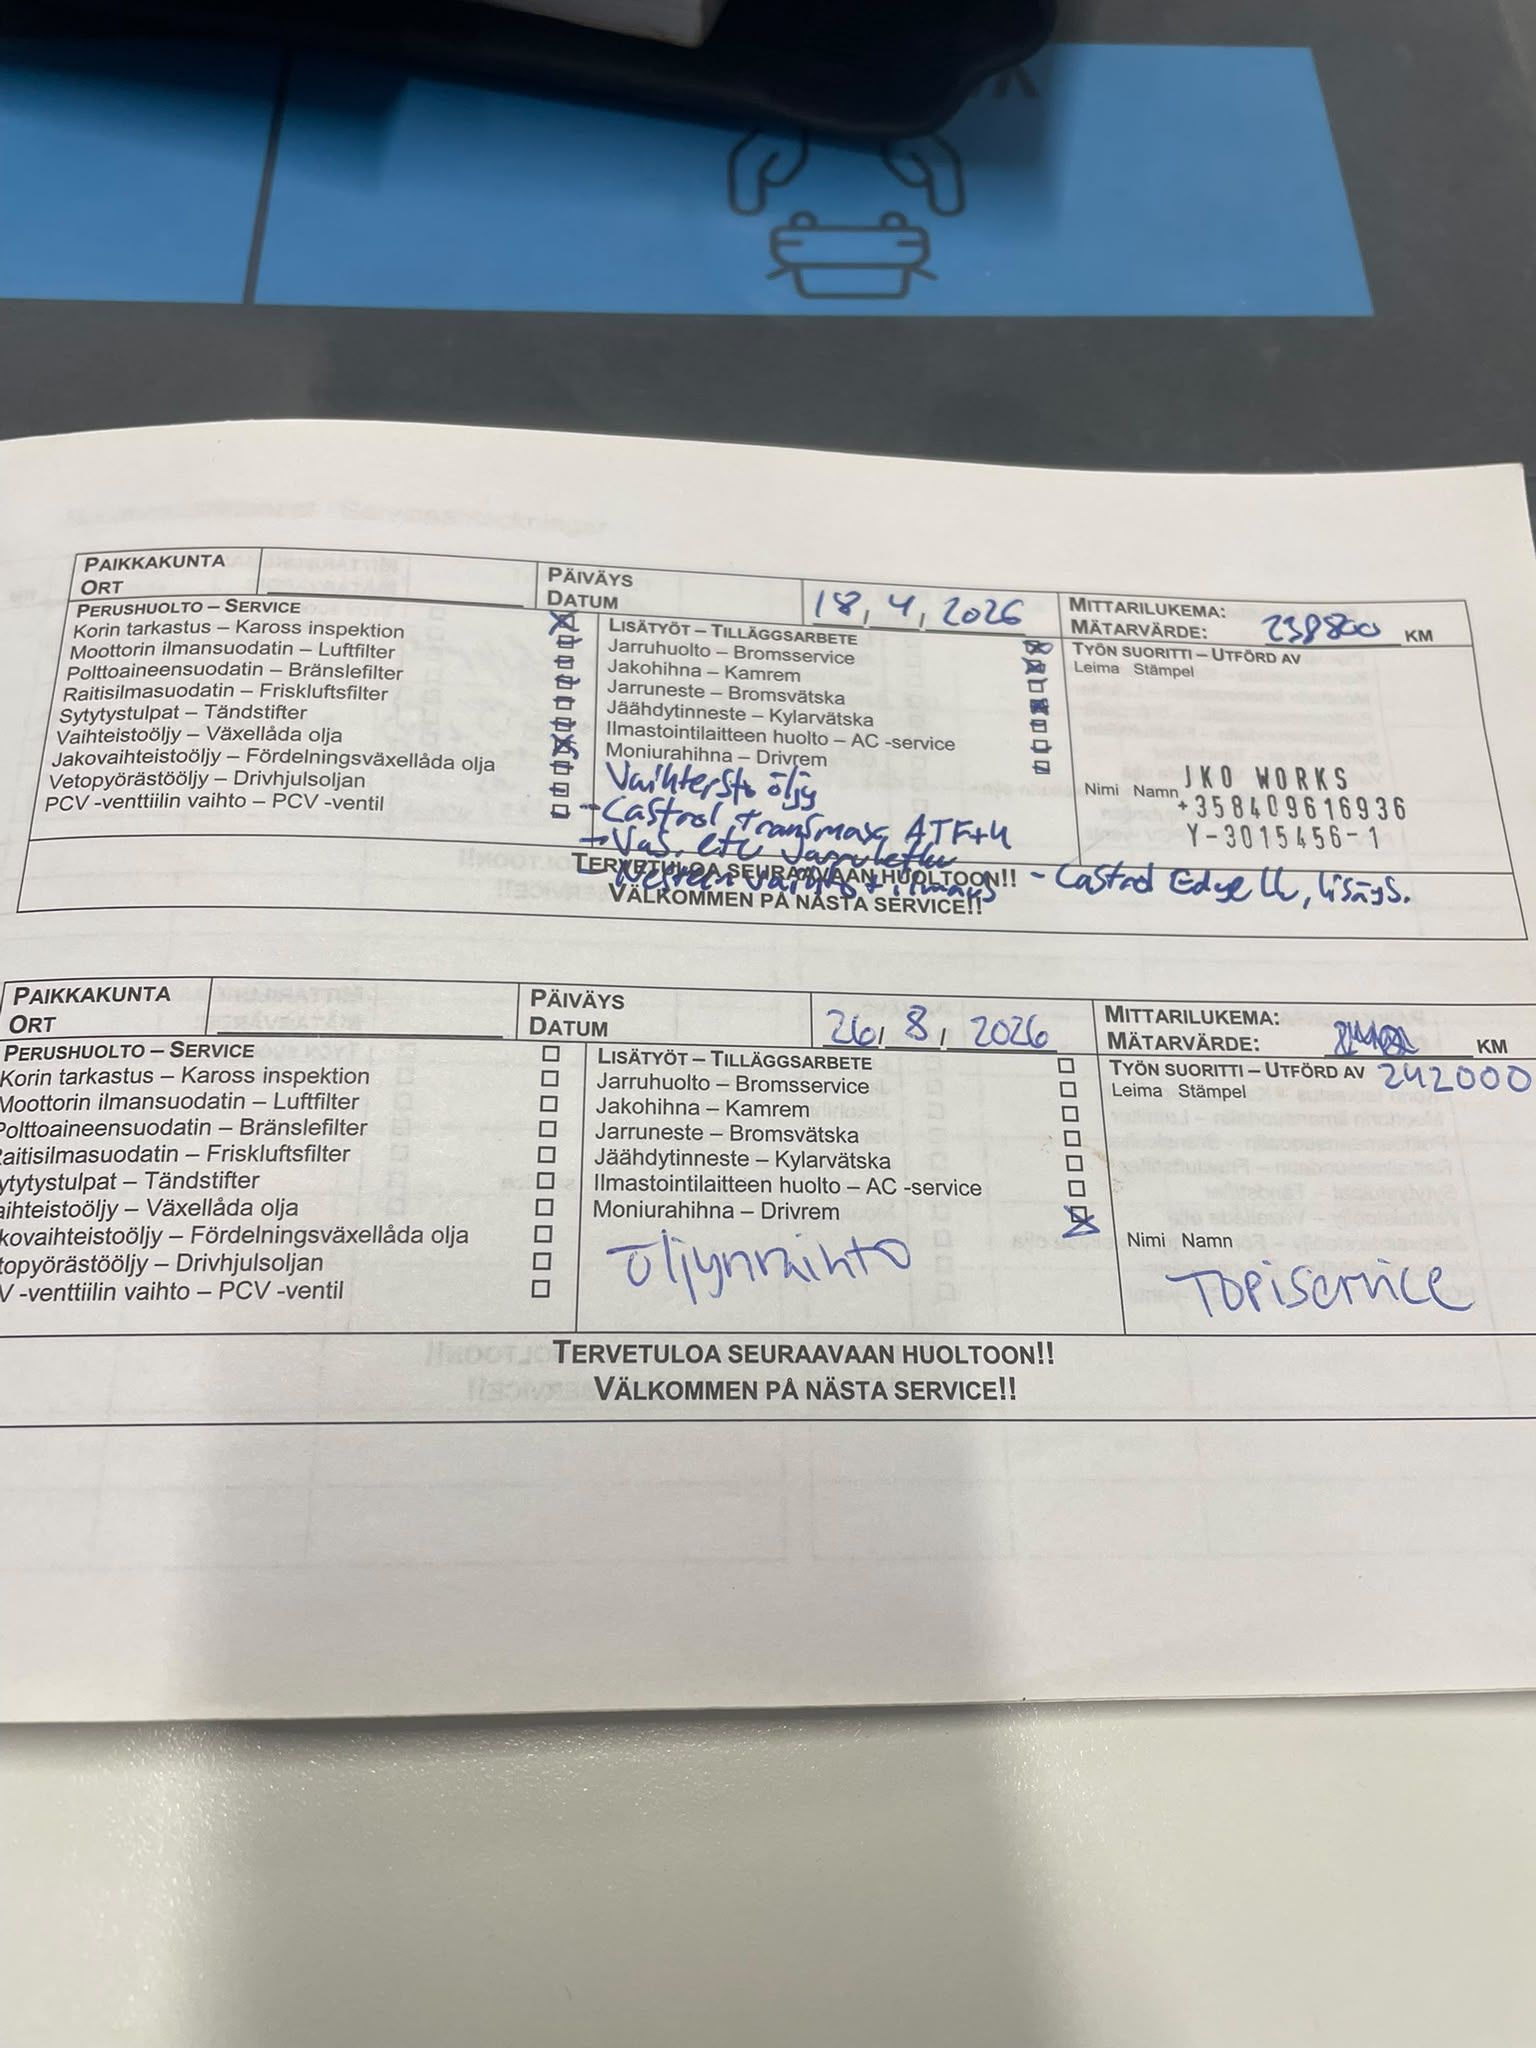 PAIKKAKUNTA
ORT
PÄIVÄYS
DATUM
18, 4, 2026
MITTARILUKEMA:
MÄTARVÄRDE: 238800 KM
PERUSHUOLTO – SERVICE
Korin tarkastus – Kaross inspektion
Moottorin ilmansuodatin – Luftfilter
Polttoaineensuodatin – Bränslefilter
Raitisilmasuodatin – Friskluftsfilter
Sytytystulpat – Tändstifter
Vaihteistoöljy – Växellåda olja
Jakovaihteistoöljy – Fördelningsväxellåda olja
Vetopyörästööljy – Drivhjulsoljan
PCV -venttiilin vaihto – PCV -ventil
LISÄTYÖT – TILLÄGGSARBETE
Jarruhuolto – Bromsservice
Jakohihna – Kamrem
Jarruneste – Bromsvätska
Jäähdytinneste – Kylarvätska
Ilmastointilaitteen huolto – AC -service
Moniurahihna – Drivrem
Vaihteisto öljy
- Castrol transmax ATF+4
- Vas. etu jarruletku
- Nesteen vaihto + ilmaus
TYÖN SUORITTI – UTFÖRD AV
Leima Stämpel
Nimi Namn
JKO WORKS
+358409616936
Y-3015456-1
TERVETULOA SEURAAVAAN HUOLTOON!!
VÄLKOMMEN PÅ NÄSTA SERVICE!!
- Castrol Edge LL, lisäys.
PAIKKAKUNTA
ORT
PÄIVÄYS
DATUM
26, 8, 2026
MITTARILUKEMA:
MÄTARVÄRDE: KM
242000
PERUSHUOLTO – SERVICE
Korin tarkastus – Kaross inspektion
Moottorin ilmansuodatin – Luftfilter
Polttoaineensuodatin – Bränslefilter
aitisilmasuodatin – Friskluftsfilter
ytytystulpat – Tändstifter
aihteistoöljy – Växellåda olja
kovaihteistoöljy – Fördelningsväxellåda olja
topyörästööljy – Drivhjulsoljan
V -venttiilin vaihto – PCV -ventil
LISÄTYÖT – TILLÄGGSARBETE
Jarruhuolto – Bromsservice
Jakohihna – Kamrem
Jarruneste – Bromsvätska
Jäähdytinneste – Kylarvätska
Ilmastointilaitteen huolto – AC -service
Moniurahihna – Drivrem
öljynvaihto
TYÖN SUORITTI – UTFÖRD AV
Leima Stämpel
Nimi Namn
Topiservice
TERVETULOA SEURAAVAAN HUOLTOON!!
VÄLKOMMEN PÅ NÄSTA SERVICE!!